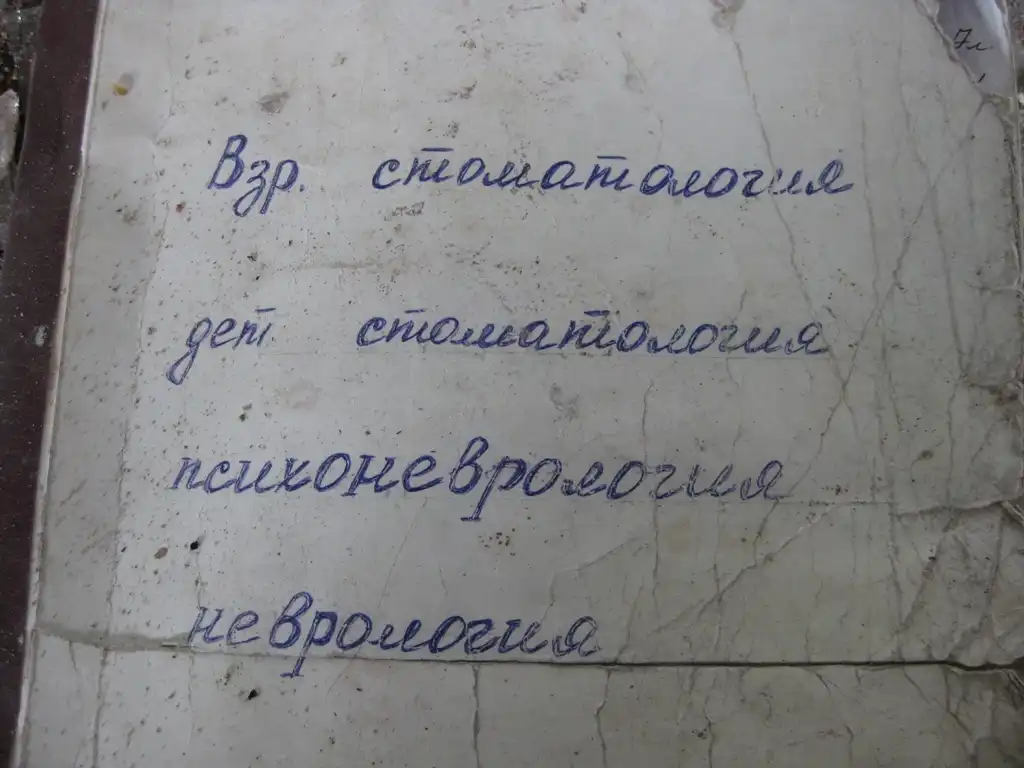 7л
Взр. стоматология
дет. стоматология
психоневрология
неврология